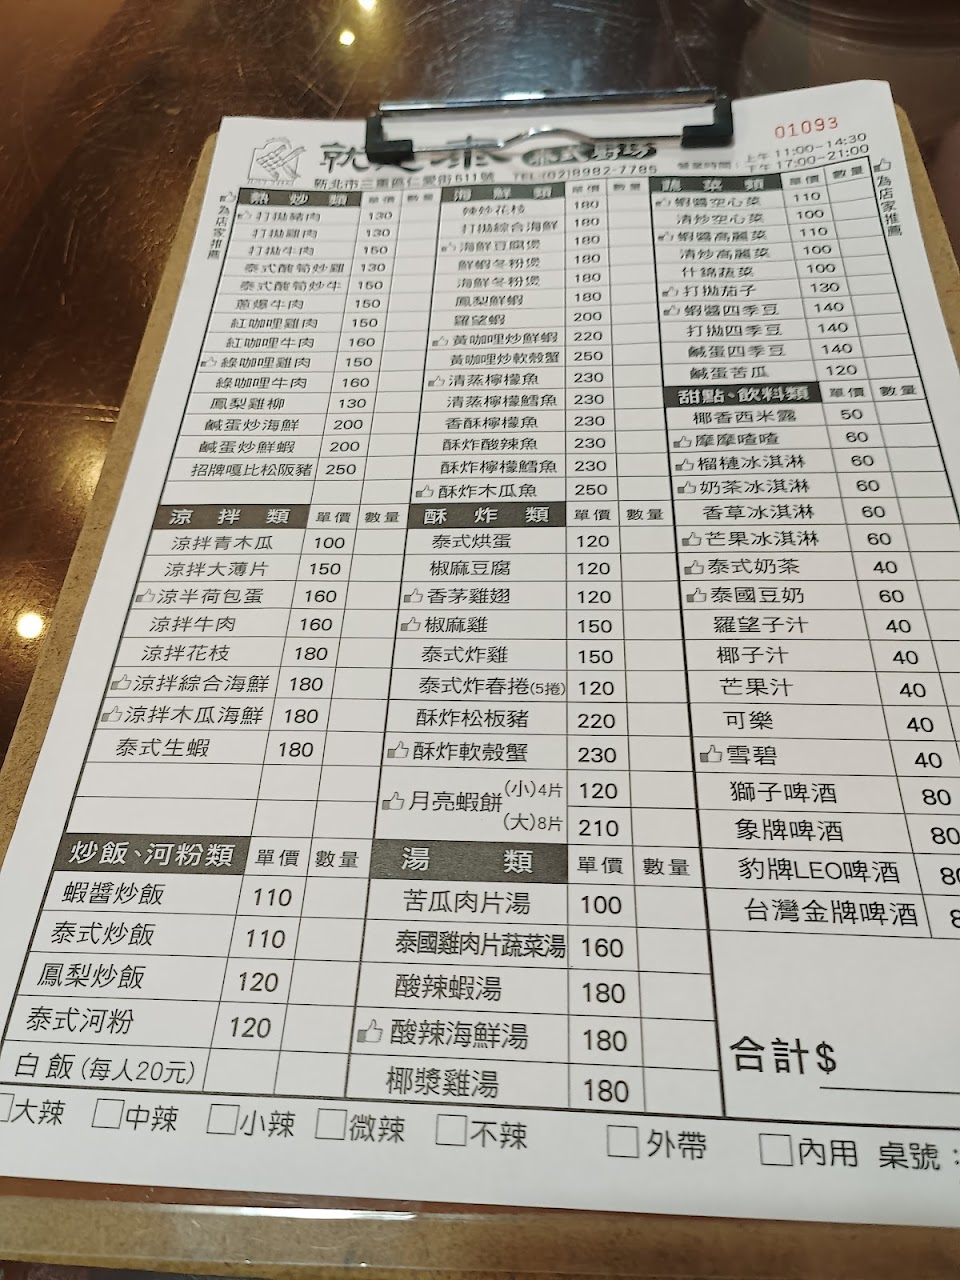 01093
就是泰
新北市三重區仁愛街611號 TEL:(02)8982-7785
營業時間：上午 11:00-14:30
下午 17:00-21:00
為店家推薦
為店家推薦
熱炒類 單價 數量
打拋豬肉 130
打拋雞肉 130
打拋牛肉 150
泰式酸筍炒雞 130
泰式酸筍炒牛 150
蔥爆牛肉 150
紅咖哩雞肉 150
紅咖哩牛肉 160
綠咖哩雞肉 150
綠咖哩牛肉 160
鳳梨雞柳 130
鹹蛋炒海鮮 200
鹹蛋炒鮮蝦 200
招牌嘎比松阪豬 250
涼拌類 單價 數量
涼拌青木瓜 100
涼拌大薄片 150
涼半荷包蛋 160
涼拌牛肉 160
涼拌花枝 180
涼拌綜合海鮮 180
涼拌木瓜海鮮 180
泰式生蝦 180
炒飯、河粉類 單價 數量
蝦醬炒飯 110
泰式炒飯 110
鳳梨炒飯 120
泰式河粉 120
白飯(每人20元)
海鮮類 單價 數量
辣炒花枝 180
打拋綜合海鮮 180
海鮮豆腐煲 180
鮮蝦冬粉煲 180
海鮮冬粉煲 180
鳳梨鮮蝦 180
羅望蝦 200
黃咖哩炒鮮蝦 220
黃咖哩炒軟殼蟹 250
清蒸檸檬魚 230
清蒸檸檬鱈魚 230
香酥檸檬魚 230
酥炸酸辣魚 230
酥炸檸檬鱈魚 230
酥炸木瓜魚 250
酥炸類 單價 數量
泰式烘蛋 120
椒麻豆腐 120
香茅雞翅 120
椒麻雞 150
泰式炸雞 150
泰式炸春捲(5捲) 120
酥炸松板豬 220
酥炸軟殼蟹 230
月亮蝦餅 (小)4片 120
(大)8片 210
湯類 單價 數量
苦瓜肉片湯 100
泰國雞肉片蔬菜湯 160
酸辣蝦湯 180
酸辣海鮮湯 180
椰漿雞湯 180
蔬菜類 單價 數量
蝦醬空心菜 110
清炒空心菜 100
蝦醬高麗菜 110
清炒高麗菜 100
什錦蔬菜 100
打拋茄子 130
蝦醬四季豆 140
打拋四季豆 140
鹹蛋四季豆 140
鹹蛋苦瓜 120
甜點、飲料類 單價 數量
椰香西米露 50
摩摩喳喳 60
榴槤冰淇淋 60
奶茶冰淇淋 60
香草冰淇淋 60
芒果冰淇淋 60
泰式奶茶 40
泰國豆奶 60
羅望子汁 40
椰子汁 40
芒果汁 40
可樂 40
雪碧 40
獅子啤酒 80
象牌啤酒 80
豹牌LEO啤酒 80
台灣金牌啤酒
合計$
大辣 中辣 小辣 微辣 不辣 外帶 內用 桌號：